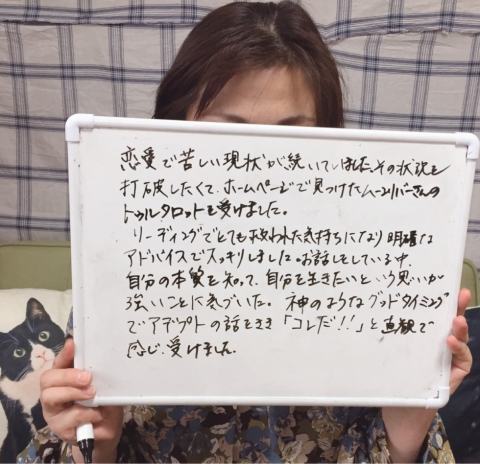 恋愛で苦しい現状が続いていました。その状況を
打破したくて、ホームページで見つけたムーンリバーさんの
トゥルタロットを受けました。
リーディングでとても救われた気持ちになり明確な
アドバイスでスッキリしました。お話をしている中、
自分の本質を知って、自分を生きたいという思いが
強いことに気づいた。神のようなグッドタイミング
でアデプトの話をきき「コレだ!!」と直観で
感じ、受けました。